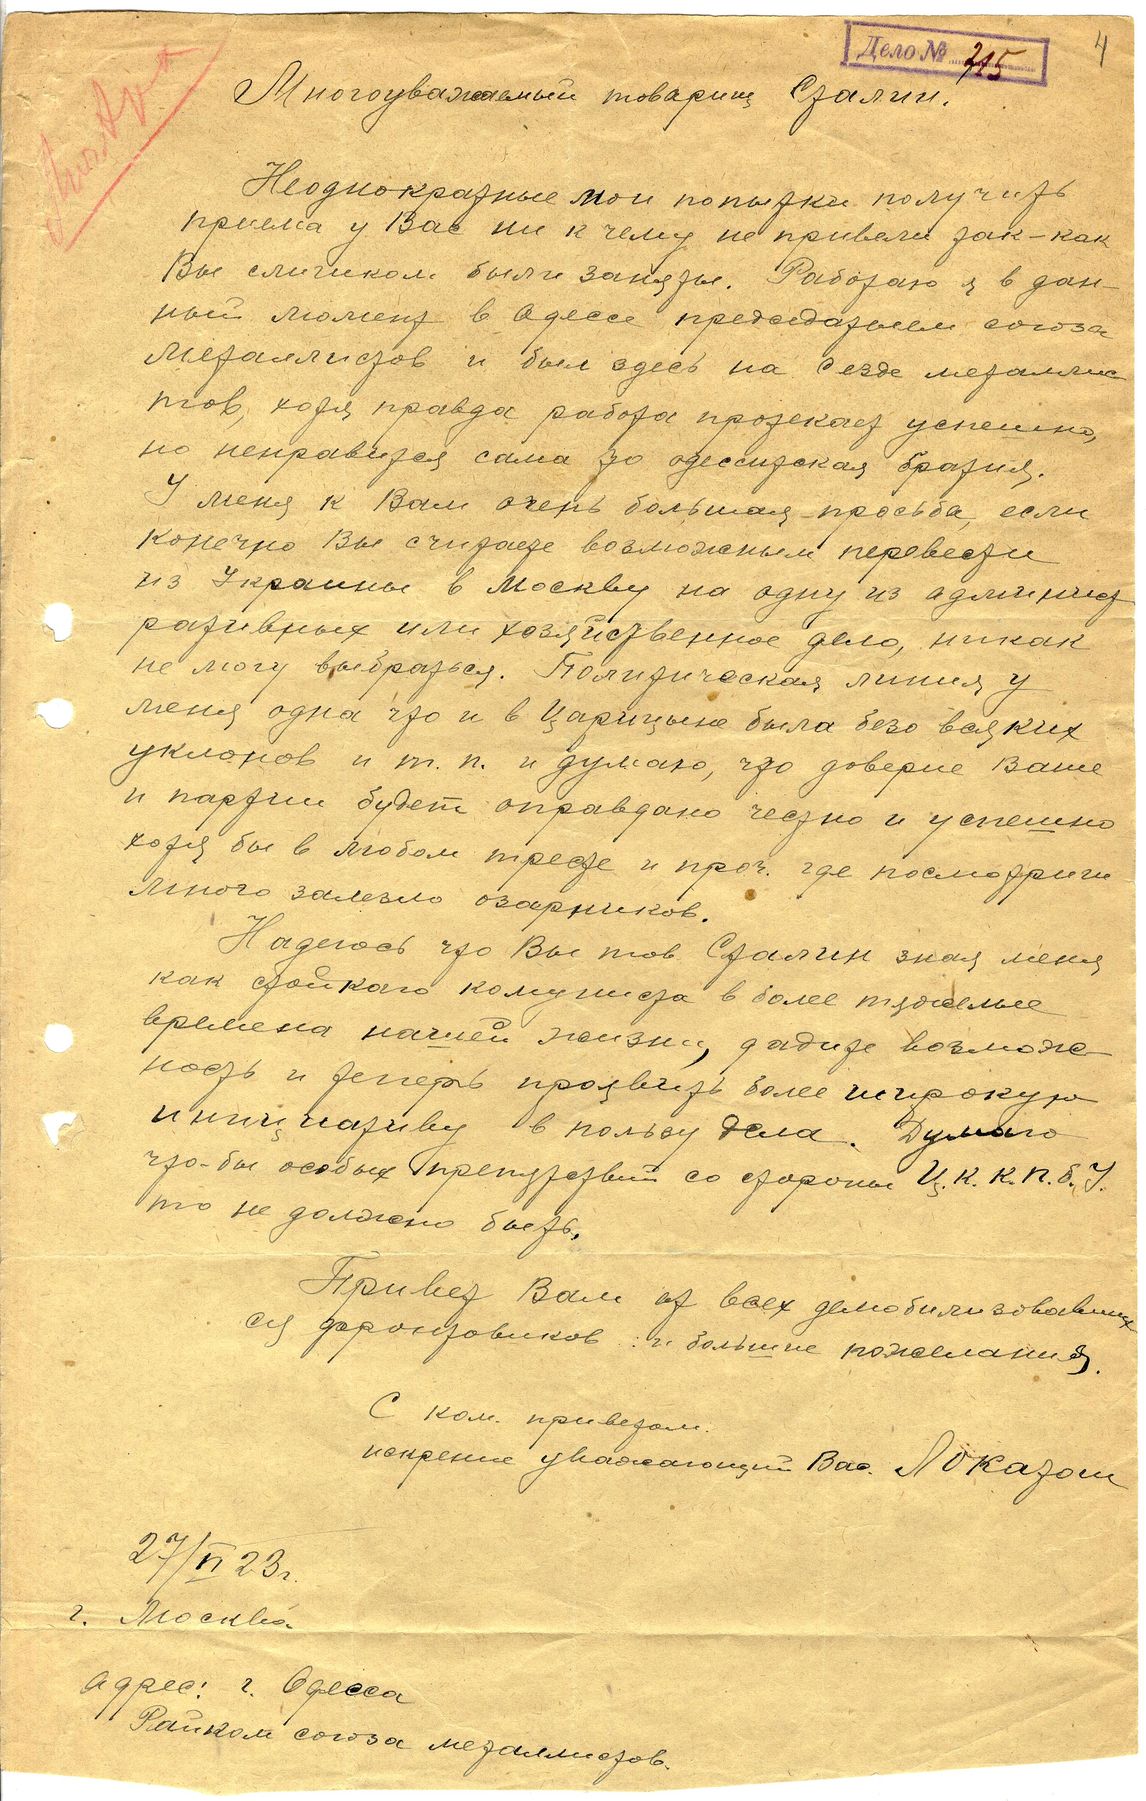 Дело № 715
4
Многоуважаемый товарищ Сталин.
Неоднократные мои попытки получить
приема у Вас ни к чему не привели так-как
Вы слишком были заняты. Работаю я в дан-
ный момент в Одессе председателем союза
металлистов и был здесь на сезде металлис
тов, хотя правда работа протекает успешно,
но ненравится сама то одесситская братия.
У меня к Вам очень большая просьба, если
конечно Вы считаете возможным перевести
из Украины в Москву на одну из админист
ративных или хозяйственное дело, никак
не могу выбраться. Политическая линия у
меня одна что и в Царицыне была безо всяких
уклонов и т. п. и думаю, что доверие Ваше
и партии будет оправдано честно и успешно
хотя бы в любом тресте и проч. где посмотриш
много залезло
Надеюсь что Вы тов. Сталин зная меня
как стойкаго комуниста в более тяжелые
времена нашей жизни, дадите возмож-
ность и теперь проявить более широкую
инициативу в пользу дела. Думаю
что-бы особых препятствий со стороны Ц.К.К.П.б.У.
то не должно быть.
Привет Вам от всех демобилизовавших
ся фронтовиков и большие пожелания.
С ком. приветом.
искренне уважающий Вас. Локатош
27/II 23г.
г. Москва.
Адрес: г. Одесса
Райком союза металлистов.